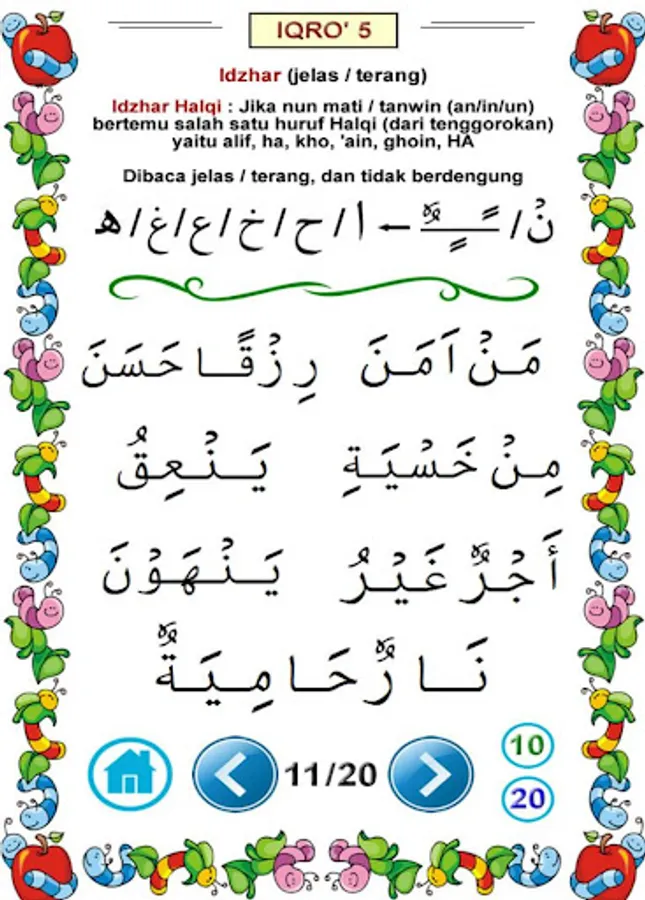 IQRO' 5
Idzhar (jelas / terang)
Idzhar Halqi : Jika nun mati / tanwin (an/in/un)
bertemu salah satu huruf Halqi (dari tenggorokan)
yaitu alif, ha, kho, 'ain, ghoin, HA
Dibaca jelas / terang, dan tidak berdengung
نْ / ـًـٍـٌ ← أ / ح / خ / ع / غ / ه
مَنْ اَمَنَ رِزْقًا حَسَنَ
مِنْ خَسْيَةِ يَنْعِقُ
أَجْرٌ غَيْرُ يَنْهَوْنَ
نَارٌ حَامِيَةٌ
11/20
10
20